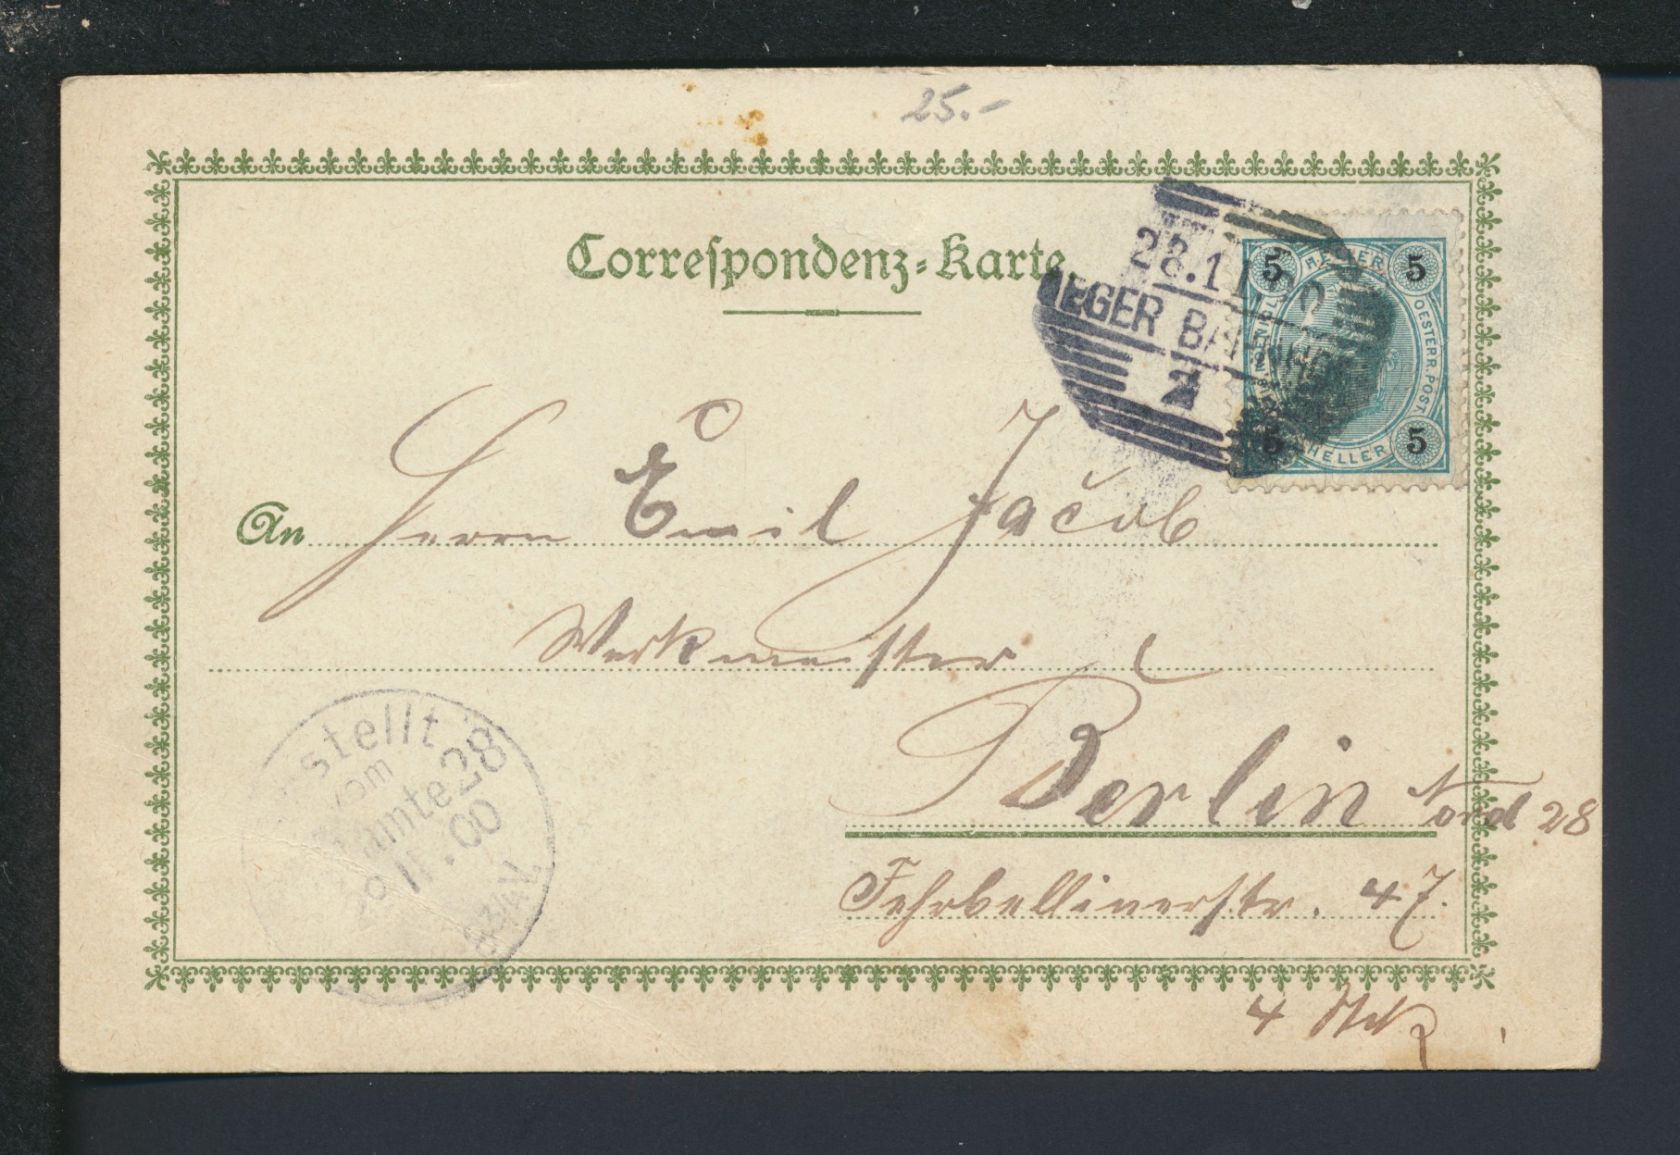 25.-
Correspondenz-Karte.
28.11.00
EGER BAHNHO
2
5 HELLER 5
OESTERR. POST.
5 HELLER 5
An Herrn Emil Jacob
Werkmeister
Berlin Nord 28
Fehrbellinerstr. 47.
4 Stck
stellt
vom
amte 28
29 11.00
8¾V.